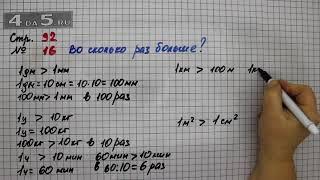 4 da 5 .ru
Стр. 92
№ 16 Во сколько раз больше?
1дм > 1мм
1дм = 10см = 10·10 = 100мм
100мм > 1мм в 100 раз
1ц > 10кг
1ц = 100кг
100кг > 10кг в 10 раз
1ч > 10мин 60мин > 10мин
1ч = 60мин в 60:10 = 6 раз
1км > 100м 1км
1м² > 1см²